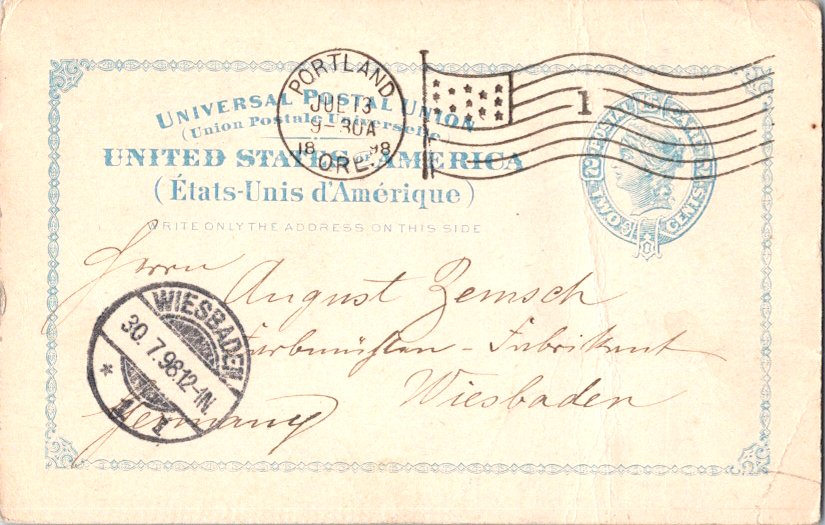 PORTLAND
JUL 13
9-30A
18 98
ORE.
1
UNIVERSAL POSTAL UNION
(Union Postale Universelle)
UNITED STATES OF AMERICA
(États-Unis d'Amérique)
WRITE ONLY THE ADDRESS ON THIS SIDE
2 POSTAL CARD 2
TWO CENTS
Herrn
August Zemsch
Fabrikant
Wiesbaden
Germany
WIESBADEN
30.7.98.12-1N.
* 1